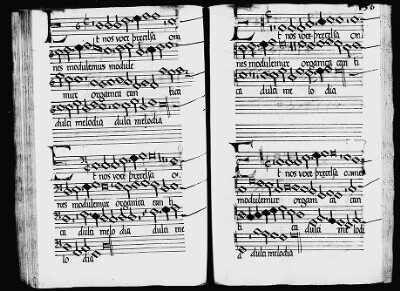 Et nos voce precelsa om
nes modulemur module
mur organica can tica
dulci melodia dulci melodia
Et nos voce precelsa o
nes modulemur organica can ti
ca dulci melo dia dulci me
lo dia
Et nos voce precelsa om
nes modulemur organica can ti
ca dulci me lo dia
Et nos voce precelsa omnes
modulemur organi ca can
ti ca dulci me lodi
a dulci melodia